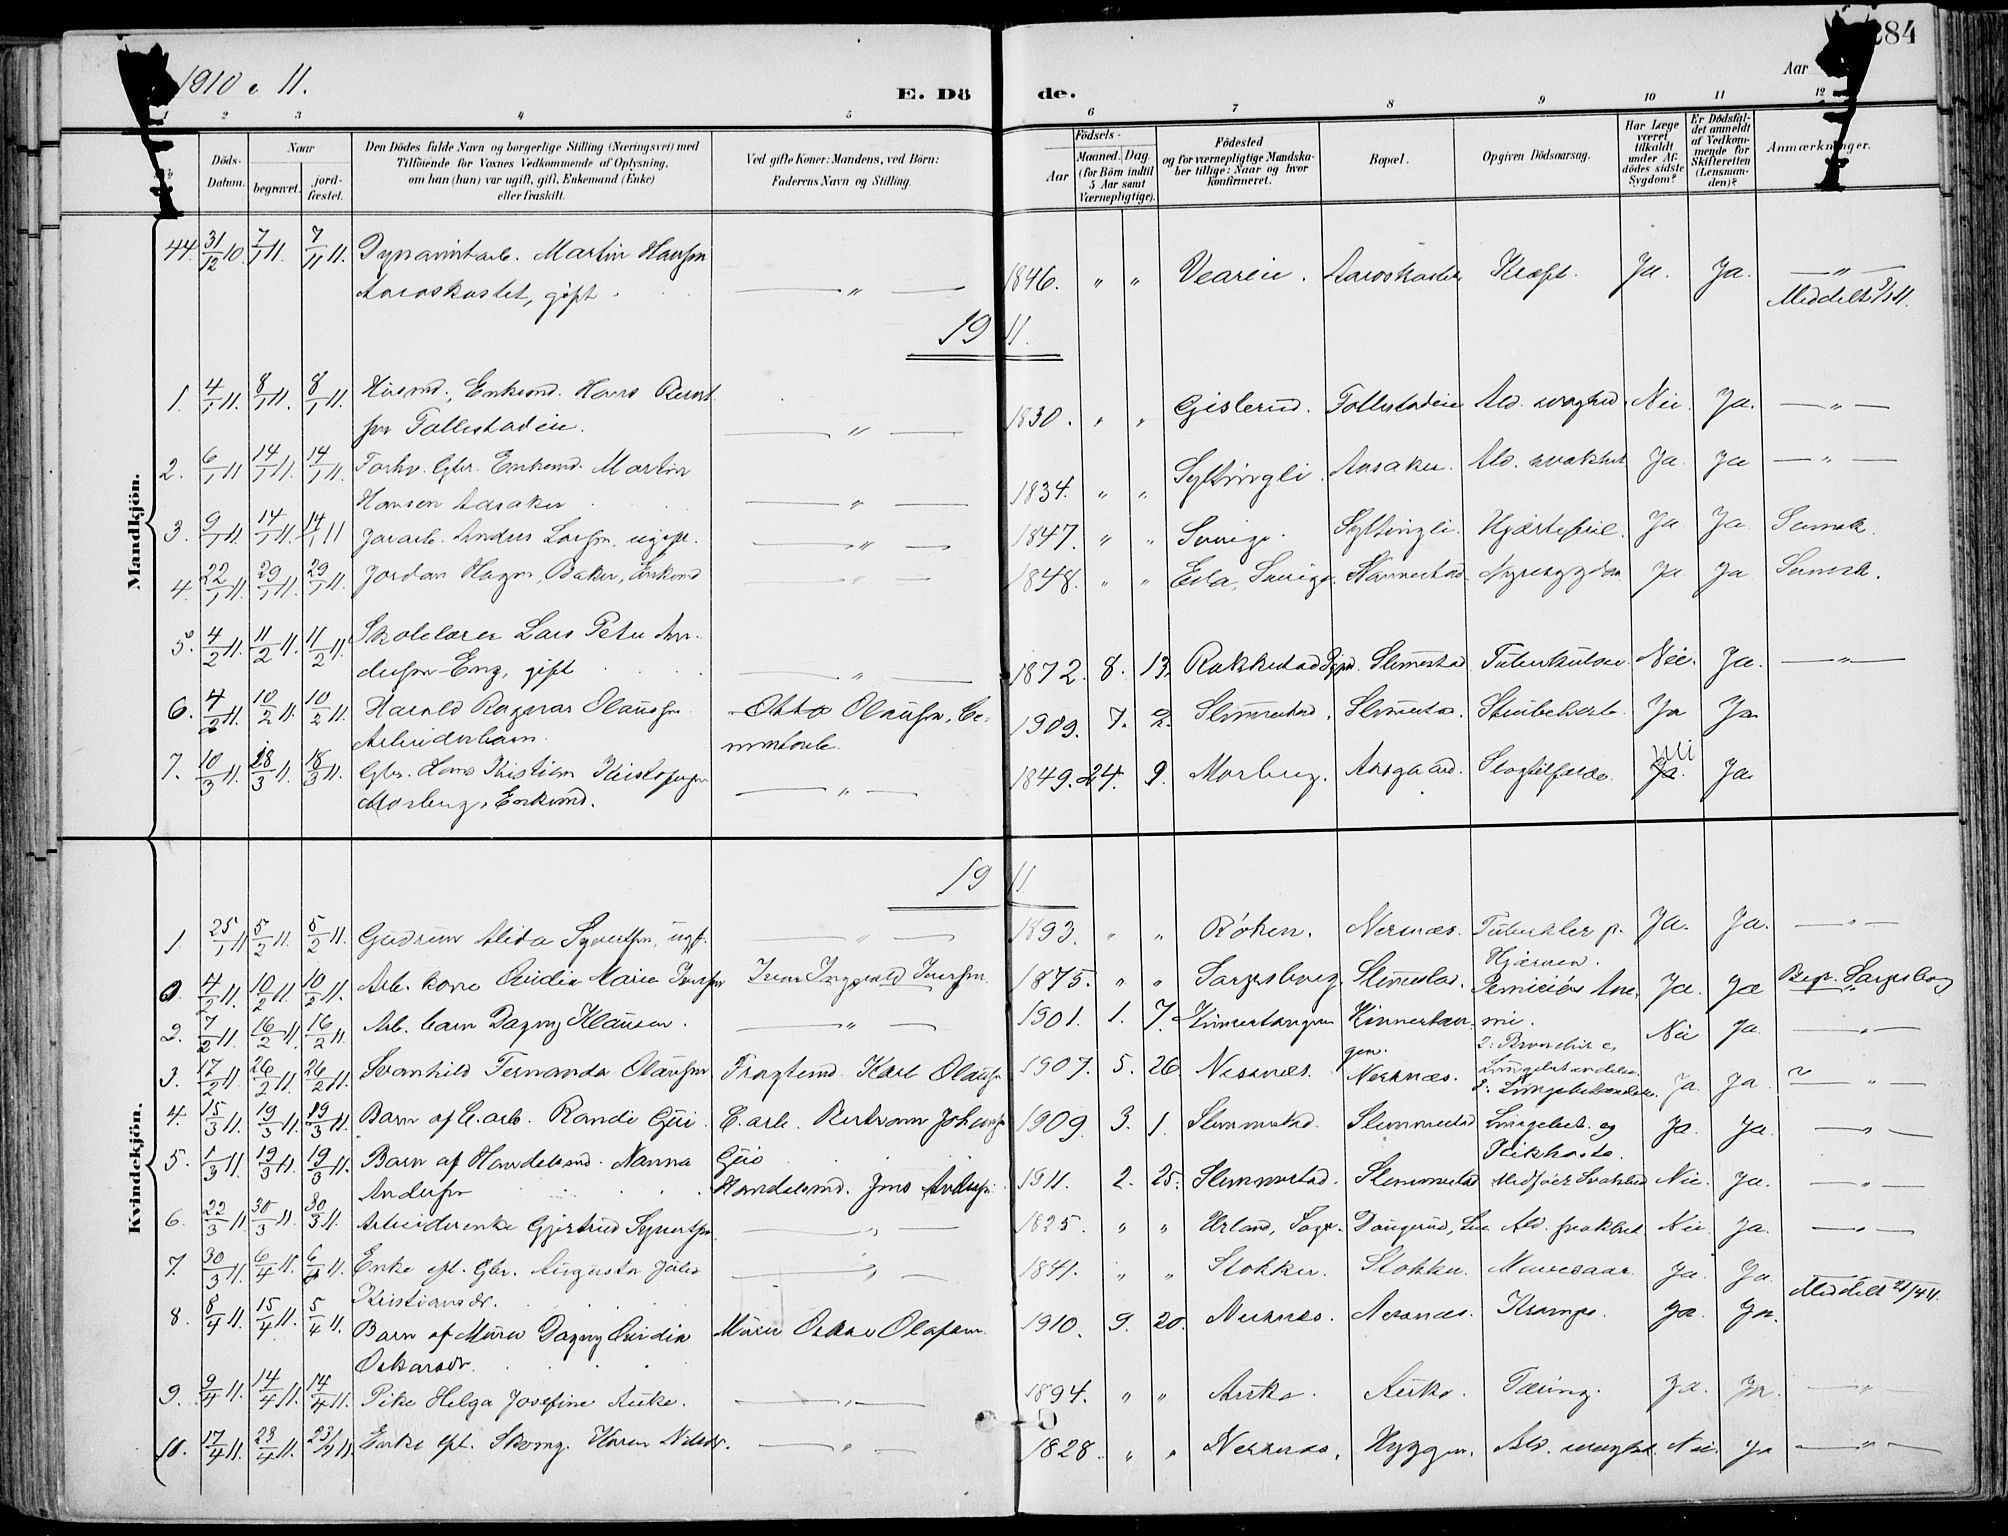 284
1910 & 11.
Aar
E. Dö de.
1 2 3 4 5 6 7 8 9 10 11 12
Döds-Datum.
Naar
begravet.
jordfæstet.
Den Dödes fulde Navn og borgerlige Stilling (Næringsvei) med
Tilföiende for Voxnes Vedkommende af Oplysning,
om han (hun) var ugift, gift, Enkemand (Enke)
eller fraskilt.
Ved gifte Koner: Mandens, ved Börn:
Faderens Navn og Stilling.
Födsels-
Aar
Maaned. Dag.
(for Börn indtil
5 Aar samt
Værnepligtige).
Födested
og for værnepligtige Mandskaber tillige: Naar og hvor
konfirmeret.
Bopæl.
Opgiven Dödsaarsag.
Har Læge
været
tilkaldt
under Afdödes sidste
Sygdom?
Er Dödsfaldet anmeldt
af Vedkommende for
Skifteretten
(Lensmanden)?
Anmærkninger.
Mandkjön.
44. 31/12 10. 7/1 11. 7/11 11. Dynamitarb. Martin Hansen 1846. " " Veareie. Aaroskastet Kræft. Ja. Ja. — " —
Aaroskastet, gift. — " — Meddelt 9/1 11.
19 11.
1. 4/1 11. 8/1 11. 8/1 11. Husmd., Enkemd. Hans Berntsen Follestadeie. — " — 1830. " " Gislerud. Follestadeie Ald. svaghed. Nei. Ja. — " —
2. 6/1 11. 14/1 11. 14/1 11. Forhv. Gbr. Enkemd. Martin
Hansen Aasaker — " — 1834. " " Syltingli. Aasaker. Ald. svakhet Ja. Ja — " —
3. 9/1 11. 14/1 11. 14/1 11 Jorarb. Anders Larsen, ugift. — " — 1847. " " Sverige. Syltingli. Hjærtefeil. Ja Ja Svensk.
4. 22/1 11. 29/1 11. 29/1 11. Jordan Hagen, Baker, Enkemd — " — 1848. " " Eda, Sverige. Nannestad. Nyresygdom Ja Ja Svensk.
5. 4/2 11. 11/2 11. 11/2 11. Skolelærer Lars Peter An-
dersen-Eng, gift — " — 1872. 8. 13. Rakkestad Slemmestad Tuberkulose. Nei. Ja. — " —
6. 4/2 11. 10/2 11. 10/2 11. Harald Ragnvar Olausen Otto Olausen, Ce- 1909. 7. 2. Slemmestad. Slemestad. Strubehoste. Ja Ja
Arbeiderbarn. mentarb.
7. 10/3 11. 18/3 11. 18/3 11. Gbr. Hans Kristian Kristofersen 1849. 24. 9. Morberg. Aasgaard. Slagtilfælde. Ja. Nei Ja.
Morberg, Enkemd. — " —
Kvindekjön.
19 11
1. 25/1 11 5/2 11. 5/2 11. Gudrun Alida Syvertsen, ugft. — " — 1893. " " Røken. Nærsnes. Tuberkler p. Ja. Ja. — " —
Hjærnen.
0. 4/2 11. 10/2 11. 10/2 11. Arb. kone Ovidia Marie Iversen Ivar Ingvald Iversen. 1875. " " Sarpsborg. Slemestad. Perniciös Ane- Ja. Ja Begr. Sarpsborg
2. 7/2 11. 16/2 11. 16/2 11. Arb. barn Dagny Klausen. — " — 1901. 1. 7. Kinnertangen Kinnertan- mie. Nei Ja. — " —
gen. 2: Bronchit &
3. 17/2 11. 26/2 11. 26/2 11. Svanhild Fernanda Olausen Fragtemd. Karl Olausen 1907. 5. 26. Nesnæs. Nærsnæs. Lungebetændelse. Ja. Ja. — " —
4. 15/3 11. 19/3 11. 19/3 11. Barn af C. arb. Randi Gui C. arb. Bertram Johansen 1909. 3. 1. Slemmestad. Slemmestad Lungebet. og Ja. Ja. — " —
Gui Kikhoste.
5. 1/3 11. 19/3 11. 19/3 11. Barn af Handelsmd. Nanna
Andersen Handelsmd. Jens Andersen. 1911. 2. 25. Slemmestad. Slemmestad Medfødt Svakhed Nei. Ja. — " —
6. 22/3 11. 30/3 11. 30/3 11. Arbeiderenke Gjertrud Syvertsen. — " — 1825. " " Urland, Sogn. Daugerud, Ald. svakhet. Nei. Ja. — " —
7. 30/3 11. 6/4 11. 6/4 11. Enke eft. Gbr. Augusta Julie
Kristiansdr. — " — 1841. " " Stokker. Stokker. Mavesaar. Ja. Ja. Meddelt 21/4 11.
8. 8/4 11. 15/4 11. 5/4 11. Barn af Murer Dagny Ovidia Murer Oskar Olafsen. 1910. 9. 20. Nersnes. Nersnes. Krampe. Ja. Ja.
Oskarsdr.
9. 9/4 11. 14/4 11. 14/4 11. Pike Helga Josefine Auke. — " — 1894. " " Auke. Auke. Tæring. Ja. Ja. — " —
10. 17/4 11. 23/4 11. 23/4 11. Enke eft. Skomg. Karen Nilsdr. — " — 1828. " " Nersnes. Hyggen. Ald. svaghed. Nei. Ja — " —